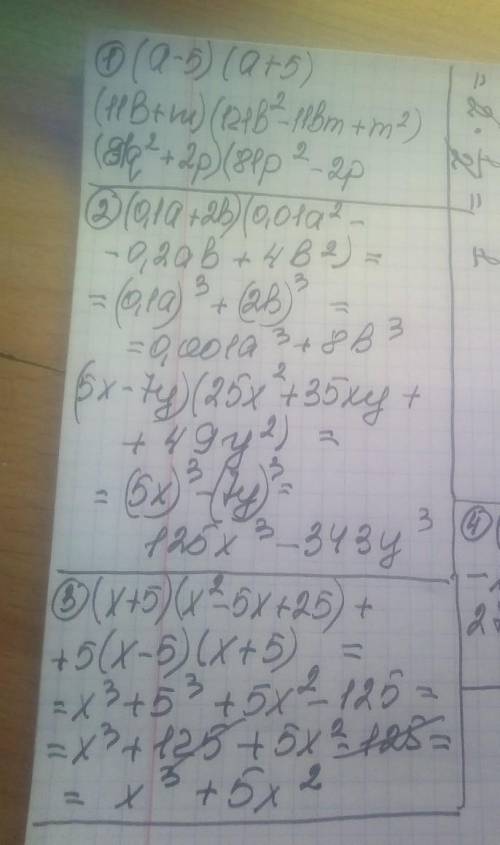 ① (a-5) (a+5)
(11b+m)(121b²-11bm+m²)
q²+2p)(81p²-2p
② (0,1a+2b)(0,01a²-
-0,2ab+4b²) =
= (0,1a)³ + (2b)³ =
= 0,001a³ + 8b³
(5x-7y)(25x²+35xy+
+49y²) =
= (5x)³-(7y)³=
125x³-343y³
③ (x+5)(x²-5x+25)+
+5(x-5)(x+5) =
=x³+5³+5x²-125=
=x³+125+5x²-125=
= x³+5x²
④